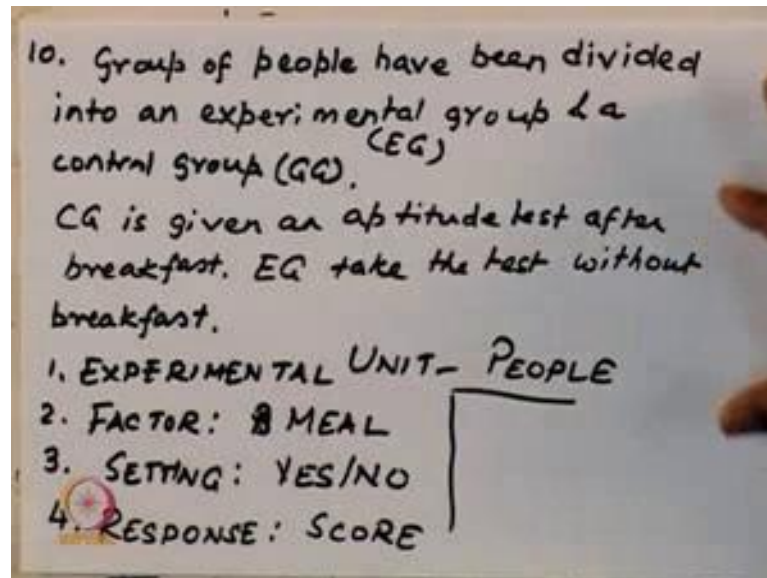 10. Group of people have been divided
into an experimental group & a
(EG)
control group (CG).
CG is given an aptitude test after
breakfast. EG take the test without
breakfast.
1. EXPERIMENTAL UNIT- PEOPLE
2. FACTOR: MEAL
3. SETTING: YES/NO
4. RESPONSE: SCORE